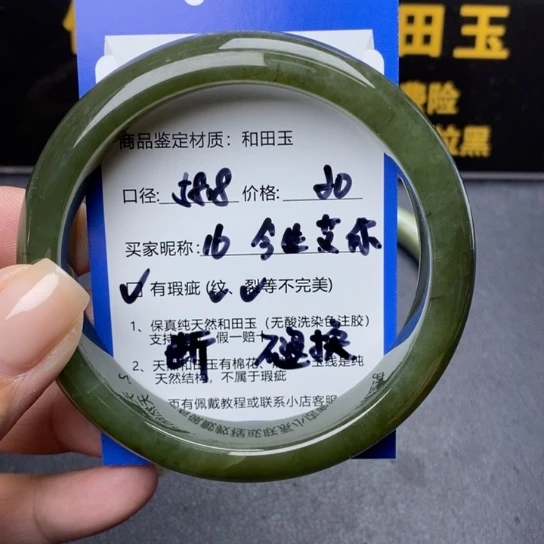 田玉
险
拉黑
商品鉴定材质：和田玉
口径: 58.8 价格: 20
买家昵称: 16 今生交你
有瑕疵 (纹、裂等不完美)
1、保真纯天然和田玉（无酸洗染色注胶）
支持 假一赔十
2、天然和田玉有棉花、 玉线是纯
天然结构，不属于瑕疵
断 退换
页有佩戴教程或联系小店客服